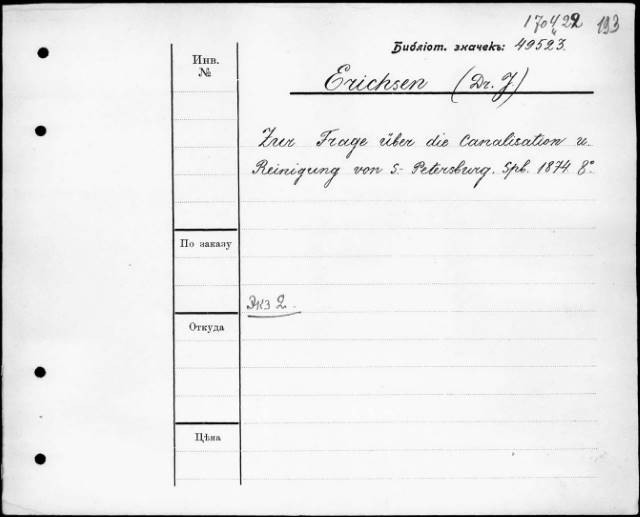 193
Библіот. значекъ: 49523.
Инв.
№
Erichsen (Dr. J.)
Zur Frage über die Canalisation u.
Reinigung von S.- Petersburg. Spb. 1874. 8°.
По заказу
экз 2.
Откуда
Цѣна